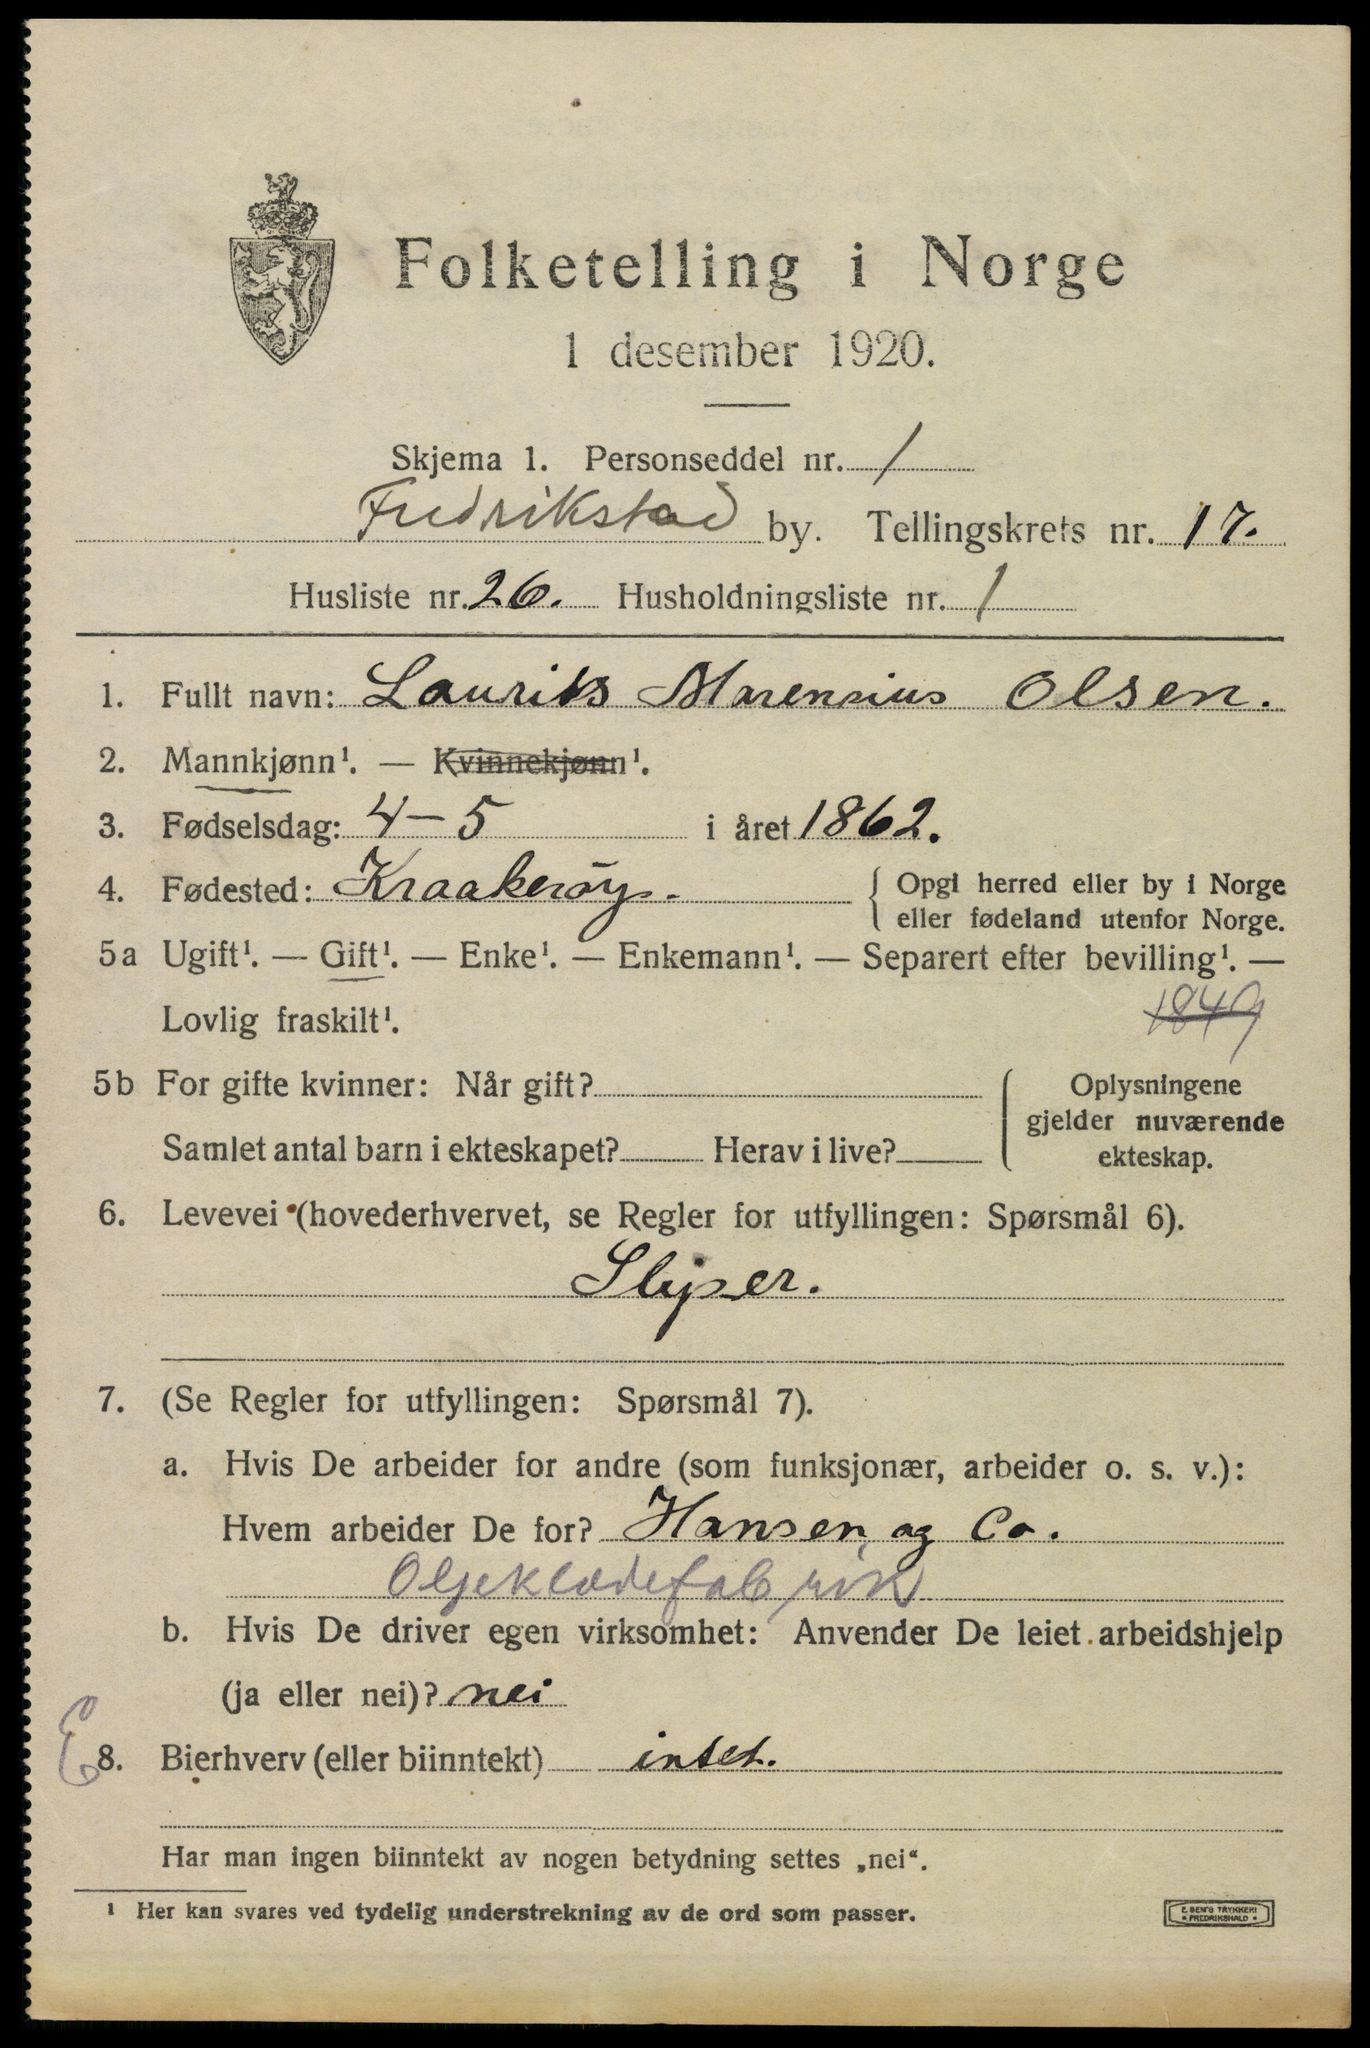 Folketelling i Norge
1 desember 1920.
Skjema 1. Personseddel nr. 1
Fredrikstad by. Tellingskrets nr. 17.
Husliste nr. 26. Husholdningsliste nr. 1
1. Fullt navn: Laurits Marensius Olsen.
2. Mannkjønn¹. — Kvinnekjønn¹.
3. Fødselsdag: 4-5 i året 1862.
4. Fødested: Kraakerøy. { Opgi herred eller by i Norge
eller fødeland utenfor Norge.
5a Ugift¹. — Gift¹. — Enke¹. — Enkemann¹. — Separert efter bevilling¹. —
Lovlig fraskilt¹. 1849
5b For gifte kvinner: Når gift? Oplysningene
gjelder nuværende
Samlet antal barn i ekteskapet? Herav i live? ekteskap.
6. Levevei (hovederhvervet, se Regler for utfyllingen: Spørsmål 6).
Sliper.
7. (Se Regler for utfyllingen: Spørsmål 7).
a. Hvis De arbeider for andre (som funksjonær, arbeider o. s. v.):
Hvem arbeider De for? Hansen og Co.
Oljeklædefabrik
b. Hvis De driver egen virksomhet: Anvender De leiet arbeidshjelp
(ja eller nei)? nei
E 8. Bierhverv (eller biinntekt) intet.
Har man ingen biinntekt av nogen betydning settes „nei“.
¹ Her kan svares ved tydelig understrekning av de ord som passer.
E. SEM'S TRYKKERI
• FREDRIKSHALD •